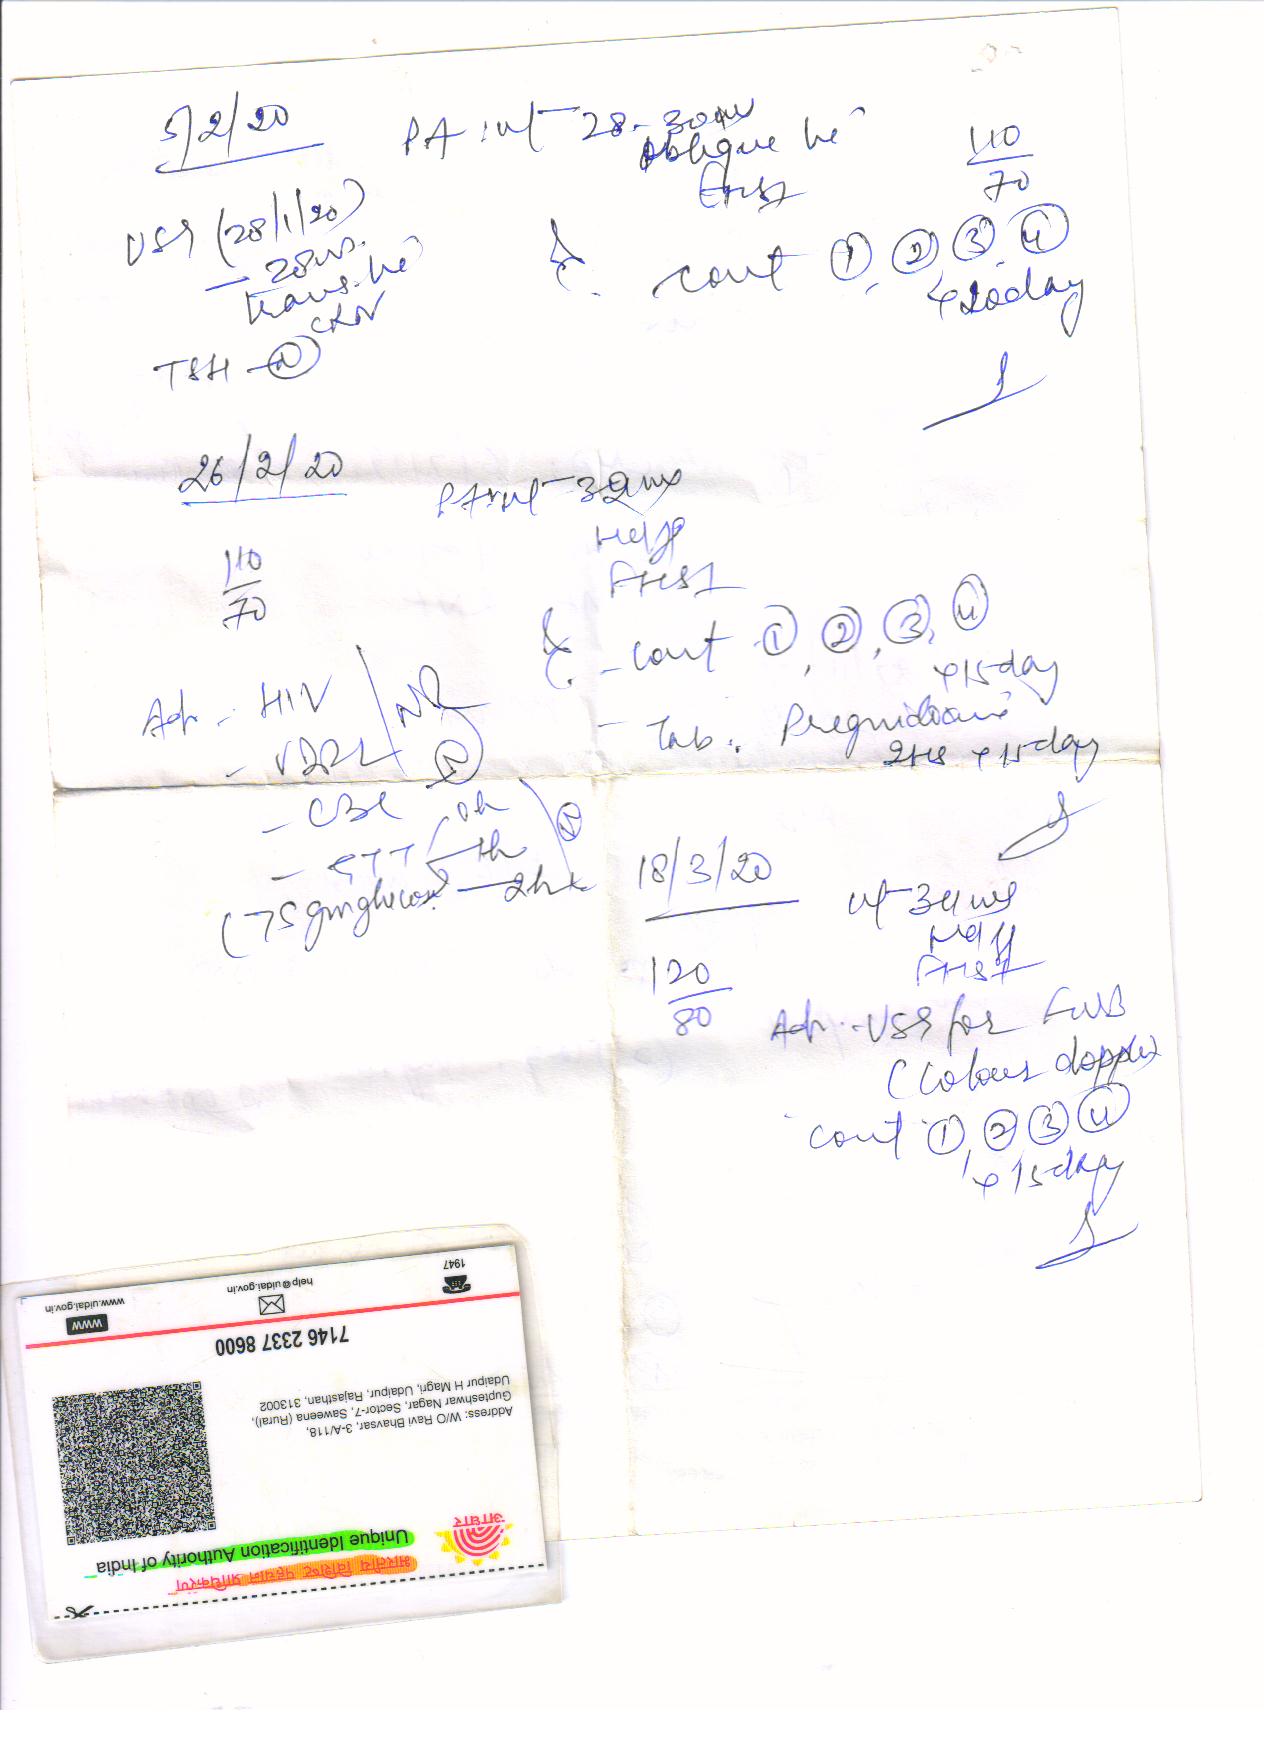 5/2/20
PA: ut - 28-30wx
oblique lie
FHS+
110/70
USG (28/1/20)
- 28ws.
trans. lie
TSH - (N)
cont ①, ②, ③, ④
x 20day
26/2/20
110/70
PA: ut - 32wx
FHS+
- cont ①, ②, ③, ④
x 15day
- Tab.
2HS x 15day
Adv - HIV
- VDRL
NR
- CBC (N)
- GTT 0h
1h
(75 gm glucose - 2hr
(N)
18/3/20
120/80
ut - 34ws
FHS+
Adv - USG for FWB
(Colour doppler
cont ①, ② ③ ④
x 15day
भारतीय विशिष्ट पहचान प्राधिकरण
Unique Identification Authority of India
आधार
Address: W/O Ravi Bhavsar, 3-A/118,
Gupteshwar Nagar, Sector-7, Saweena (Rural),
Udaipur H Magri, Udaipur, Rajasthan, 313002
7146 2337 8600
1947
help@uidai.gov.in
www
www.uidai.gov.in